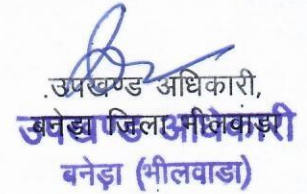 .उपखण्ड अधिकारी,
बनेडा जिला भीलवाड़ा
उपखण्ड अधिकारी
बनेड़ा (भीलवाडा)